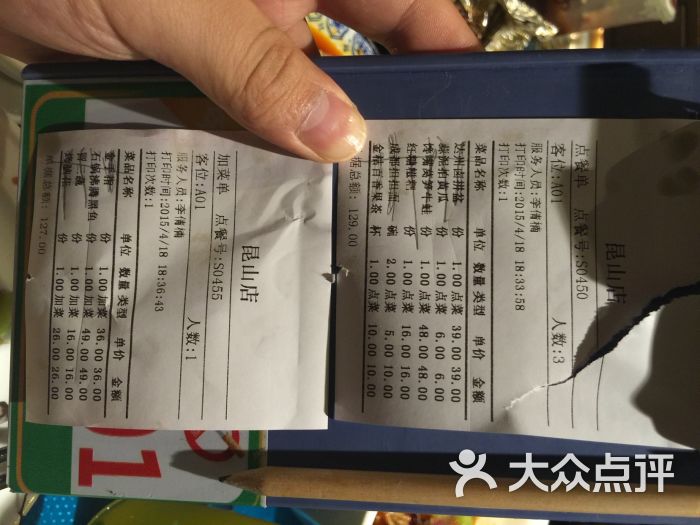 昆山店
点餐单 点餐号:S0450
客位:A01 人数:3
服务人员:李倩楠
打印时间:2015/4/18 18:33:58
打印次数:1
菜品名称 单位 数量 类型 单价 金额
达州卤拼盆 份 1.00 点菜 39.00 39.00
拍黄瓜 份 1.00 点菜 6.00 6.00
馋嘴莴笋牛蛙 份 1.00 点菜 48.00 48.00
红糖糍粑 份 1.00 点菜 16.00 16.00
成都担担面 碗 2.00 点菜 5.00 10.00
金桔百香果茶 杯 1.00 点菜 10.00 10.00
据总额: 129.00
昆山店
加菜单 点餐号:S0455
客位:A01 人数:1
服务人员:李倩楠
打印时间:2015/4/18 18:36:43
打印次数:1
菜品名称 单位 数量 类型 单价 金额
份 1.00 加菜 36.00 36.00
石锅沸腾黑鱼 份 1.00 加菜 49.00 49.00
份 1.00 加菜 16.00 16.00
份 1.00 加菜 26.00 26.00
单据总额: 127.00
01
大众点评